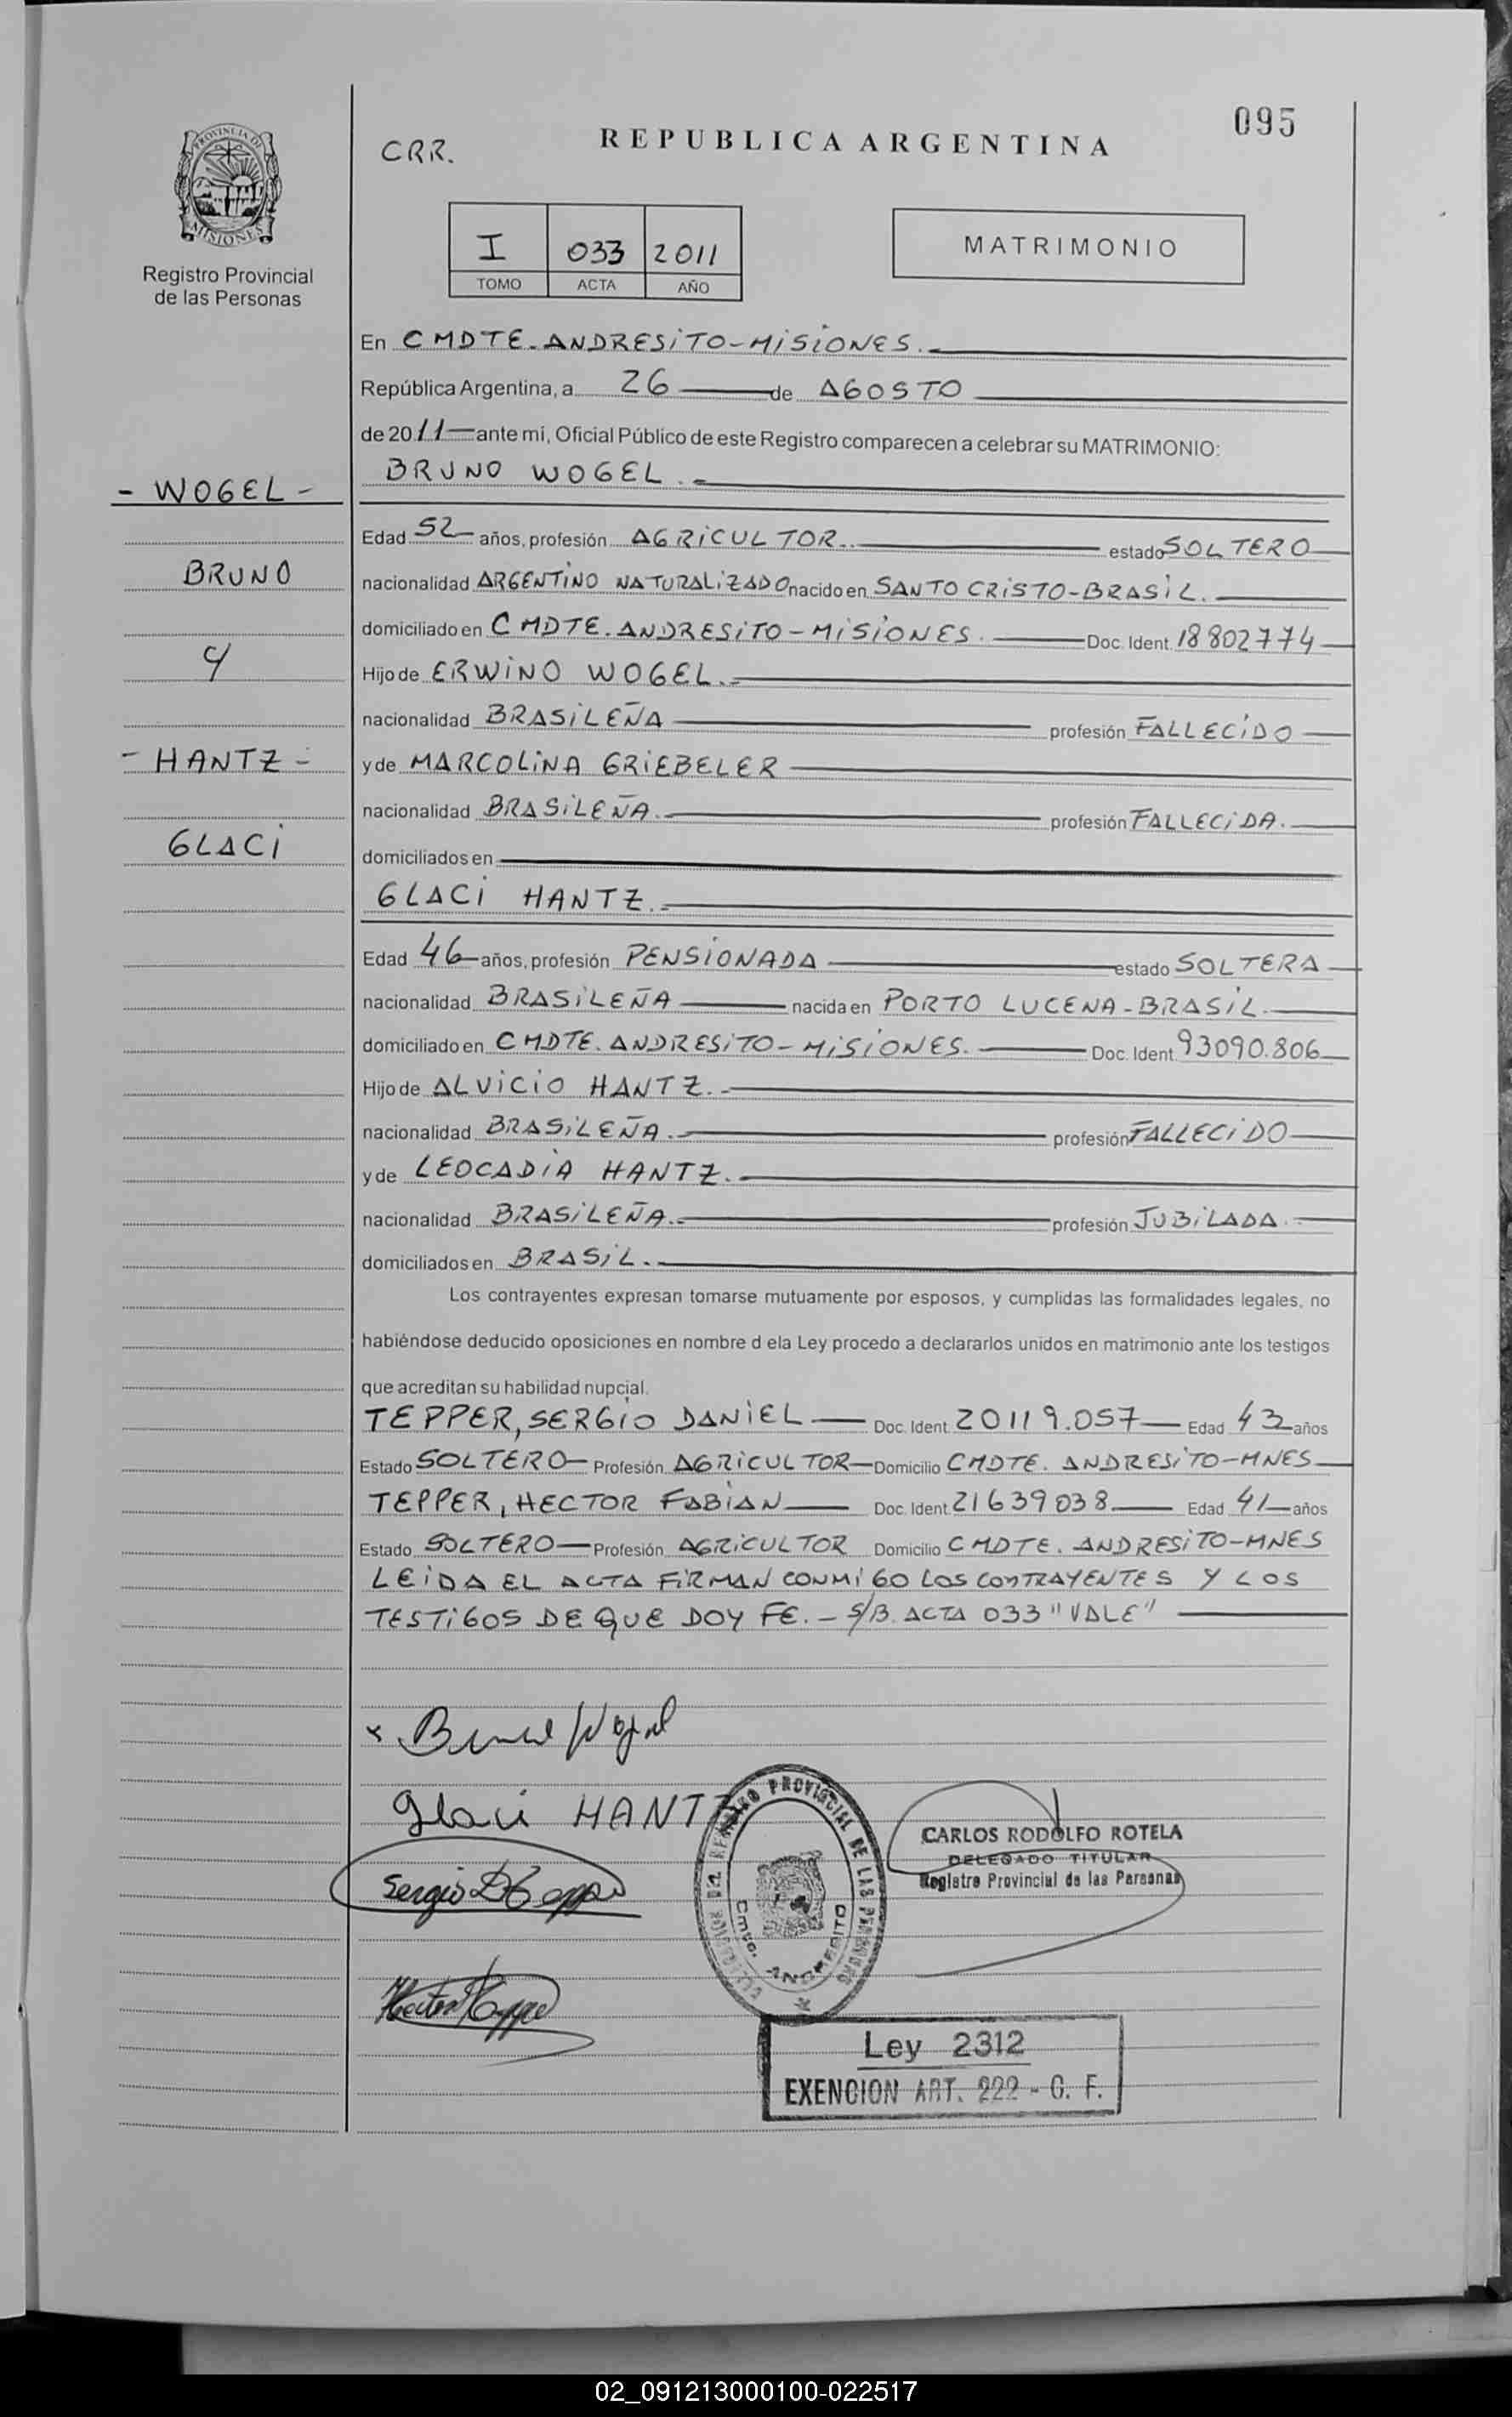 095
CRR.
REPUBLICA ARGENTINA
PROVINCIA DE
MISIONES
Registro Provincial
de las Personas
I 033 2011
TOMO ACTA AÑO
MATRIMONIO
En CMDTE-ANDRESITO-MISIONES.-
República Argentina, a 26 de AGOSTO
de 2011 ante mi, Oficial Público de este Registro comparecen a celebrar su MATRIMONIO:
BRUNO WOGEL.-
- WOGEL -
Edad 52 años, profesión AGRICULTOR.. estado SOLTERO
BRUNO
nacionalidad ARGENTINO NATURALIZADO nacido en SANTO CRISTO-BRASIL.
domiciliado en CMDTE. ANDRESITO-MISIONES. Doc. Ident. 18802774
Y
Hijo de ERWINO WOGEL.-
nacionalidad BRASILEÑA profesión FALLECIDO
- HANTZ -
y de MARCOLINA GRIEBELER
nacionalidad BRASILEÑA. profesión FALLECIDA.
GLACI
domiciliados en
GLACI HANTZ.-
Edad 46 años, profesión PENSIONADA estado SOLTERA
nacionalidad BRASILEÑA nacida en PORTO LUCENA-BRASIL.
domiciliado en CMDTE. ANDRESITO-MISIONES. Doc. Ident. 93090.806
Hijo de ALVICIO HANTZ.-
nacionalidad BRASILEÑA.- profesión FALLECIDO
y de LEOCADIA HANTZ.-
nacionalidad BRASILEÑA.- profesión JUBILADA.
domiciliados en BRASIL.-
Los contrayentes expresan tomarse mutuamente por esposos, y cumplidas las formalidades legales, no
habiéndose deducido oposiciones en nombre d ela Ley procedo a declararlos unidos en matrimonio ante los testigos
que acreditan su habilidad nupcial.
TEPPER, SERGIO DANIEL Doc. Ident. 20119.057 Edad 43 años
Estado SOLTERO Profesión AGRICULTOR Domicilio CMDTE. ANDRESITO-MNES
TEPPER, HECTOR FABIAN Doc. Ident. 21639038 Edad 41 años
Estado SOLTERO Profesión AGRICULTOR Domicilio CMDTE. ANDRESITO-MNES
LEIDA EL ACTA FIRMAN CONMIGO LOS CONTRAYENTES Y LOS
TESTIGOS DE QUE DOY FE.- S/B. ACTA 033 "VALE"
x Bruno Wogel
Glaci HANTZ
Sergio D Tepper
Hector Tepper
REGISTRO PROVINCIAL DE LAS PERSONAS
Cmte. ANDRESITO
CARLOS RODOLFO ROTELA
DELEGADO TITULAR
Registro Provincial de las Personas
Ley 2312
EXENCION ART. 222 - C. F.
02_091213000100-022517